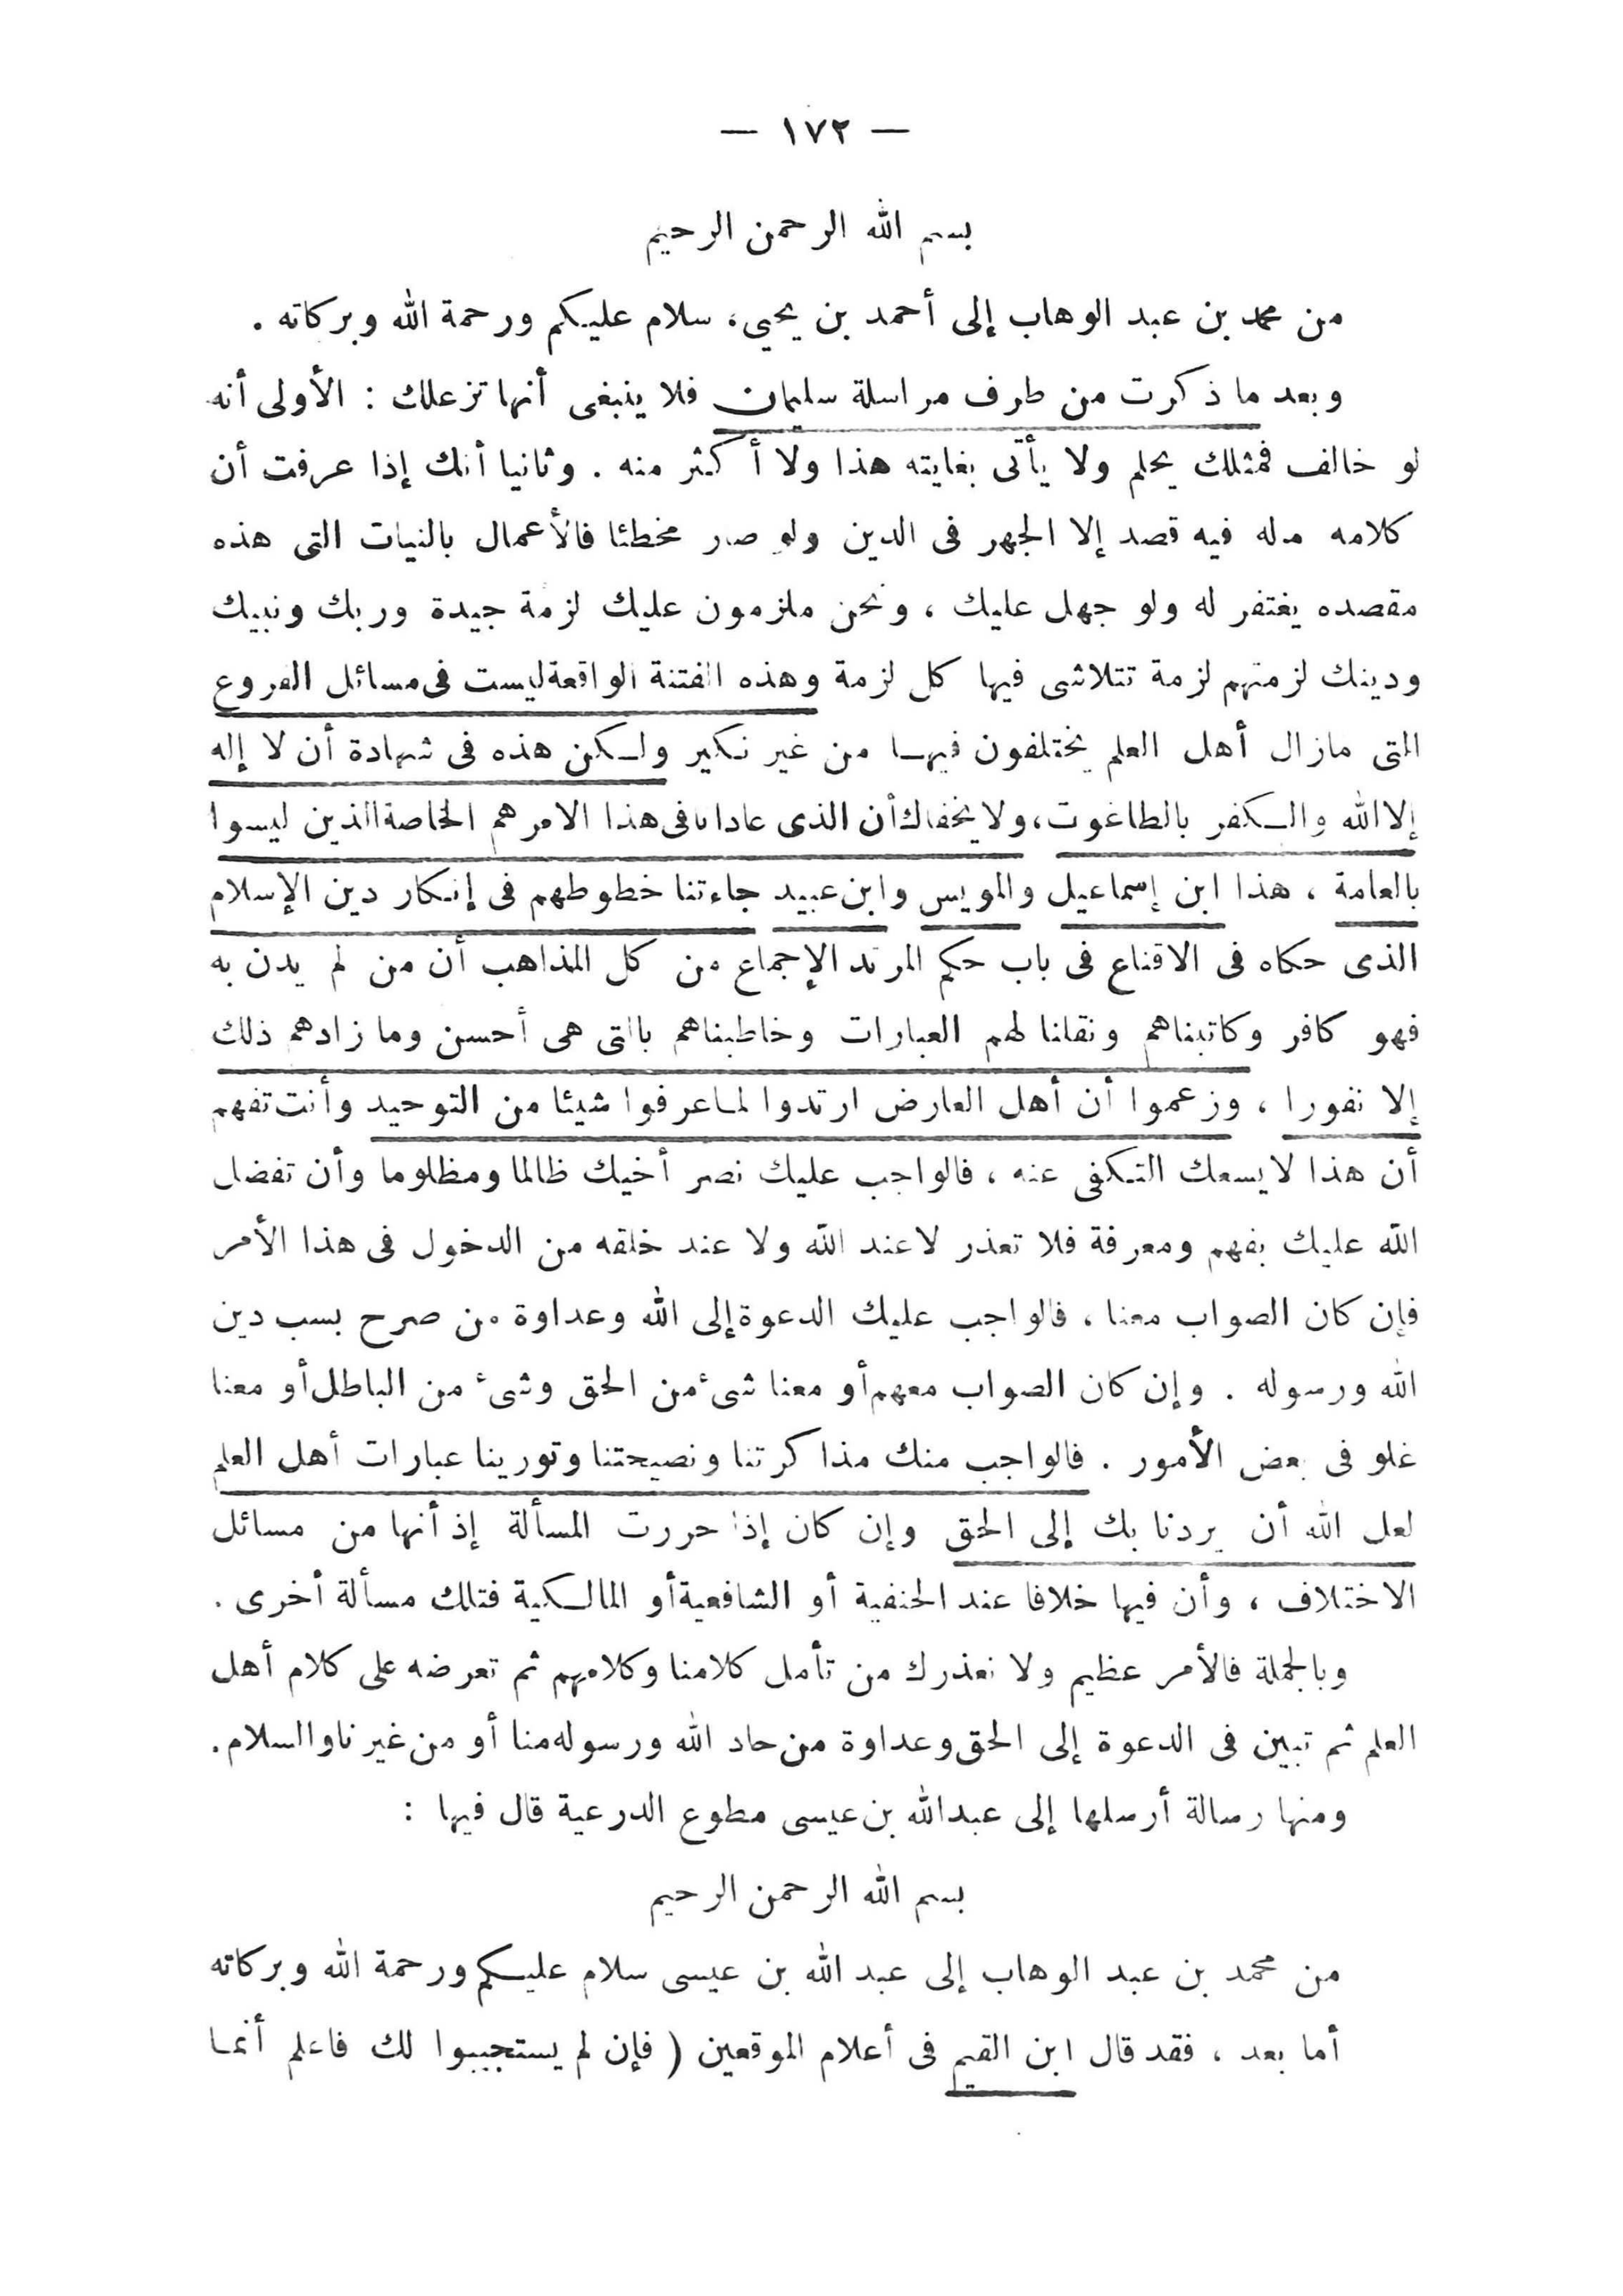 — ١٧٢ —
بسم الله الرحمن الرحيم
من محمد بن عبد الوهاب إلى أحمد بن يحيى، سلام عليكم ورحمة الله وبركاته .
وبعد ما ذكرت من طرف مراسلة سليمان فلا ينبغى أنها تزعلك : الأولى أنه
لو خالف فمثلك يحلم ولا يأتى بغايته هذا ولا أكثر منه . وثانيا أنك إذا عرفت أن
كلامه مله فيه قصد إلا الجهر فى الدين ولو صار مخطئا فالأعمال بالنيات التى هذه
مقصده يغتفر له ولو جهل عليك ، ونحن ملزمون عليك لزمة جيدة وربك ونبيك
ودينك لزمتهم لزمة تتلاشى فيها كل لزمة وهذه الفتنة الواقعة ليست فى مسائل الفروع
التى مازال أهل العلم يختلفون فيها من غير نكير ولكن هذه فى شهادة أن لا إله
إلا الله والكفر بالطاغوت، ولا يخفاك أن الذى عادانا فى هذا الامر هم الخاصة الذين ليسوا
بالعامة ، هذا ابن إسماعيل والمويس وابن عبيد جاءتنا خطوطهم فى إنكار دين الإسلام
الذى حكاه فى الاقناع فى باب حكم المرتد الإجماع من كل المذاهب أن من لم يدن به
فهو كافر وكاتبناهم ونقلنا لهم العبارات وخاطبناهم بالتى هى أحسن وما زادهم ذلك
إلا نفورا ، وزعموا أن أهل العارض ارتدوا لما عرفوا شيئا من التوحيد وأنت تفهم
أن هذا لا يسعك التكفى عنه ، فالواجب عليك نصر أخيك ظالما ومظلوما وأن تفضل
الله عليك بفهم ومعرفة فلا تعذر لا عند الله ولا عند خلقه من الدخول فى هذا الأمر
فإن كان الصواب معنا ، فالواجب عليك الدعوة إلى الله وعداوة من صرح بسب دين
الله ورسوله . وإن كان الصواب معهم أو معنا شىء من الحق وشىء من الباطل أو معنا
غلو فى بعض الأمور . فالواجب منك مذاكرتنا ونصيحتنا وتورينا عبارات أهل العلم
لعل الله أن يردنا بك إلى الحق وإن كان إذا حررت المسألة إذ أنها من مسائل
الاختلاف ، وأن فيها خلافا عند الحنفية أو الشافعية أو المالكية فتلك مسألة أخرى .
وبالجملة فالأمر عظيم ولا نعذرك من تأمل كلامنا وكلامهم ثم تعرضه على كلام أهل
العلم ثم تبين فى الدعوة إلى الحق وعداوة من حاد الله ورسوله منا أو من غيرنا والسلام.
ومنها رسالة أرسلها إلى عبدالله بن عيسى مطوع الدرعية قال فيها :
بسم الله الرحمن الرحيم
من محمد بن عبد الوهاب إلى عبد الله بن عيسى سلام عليكم ورحمة الله وبركاته
أما بعد ، فقد قال ابن القيم فى أعلام الموقعين ( فإن لم يستجيبوا لك فاعلم أنما